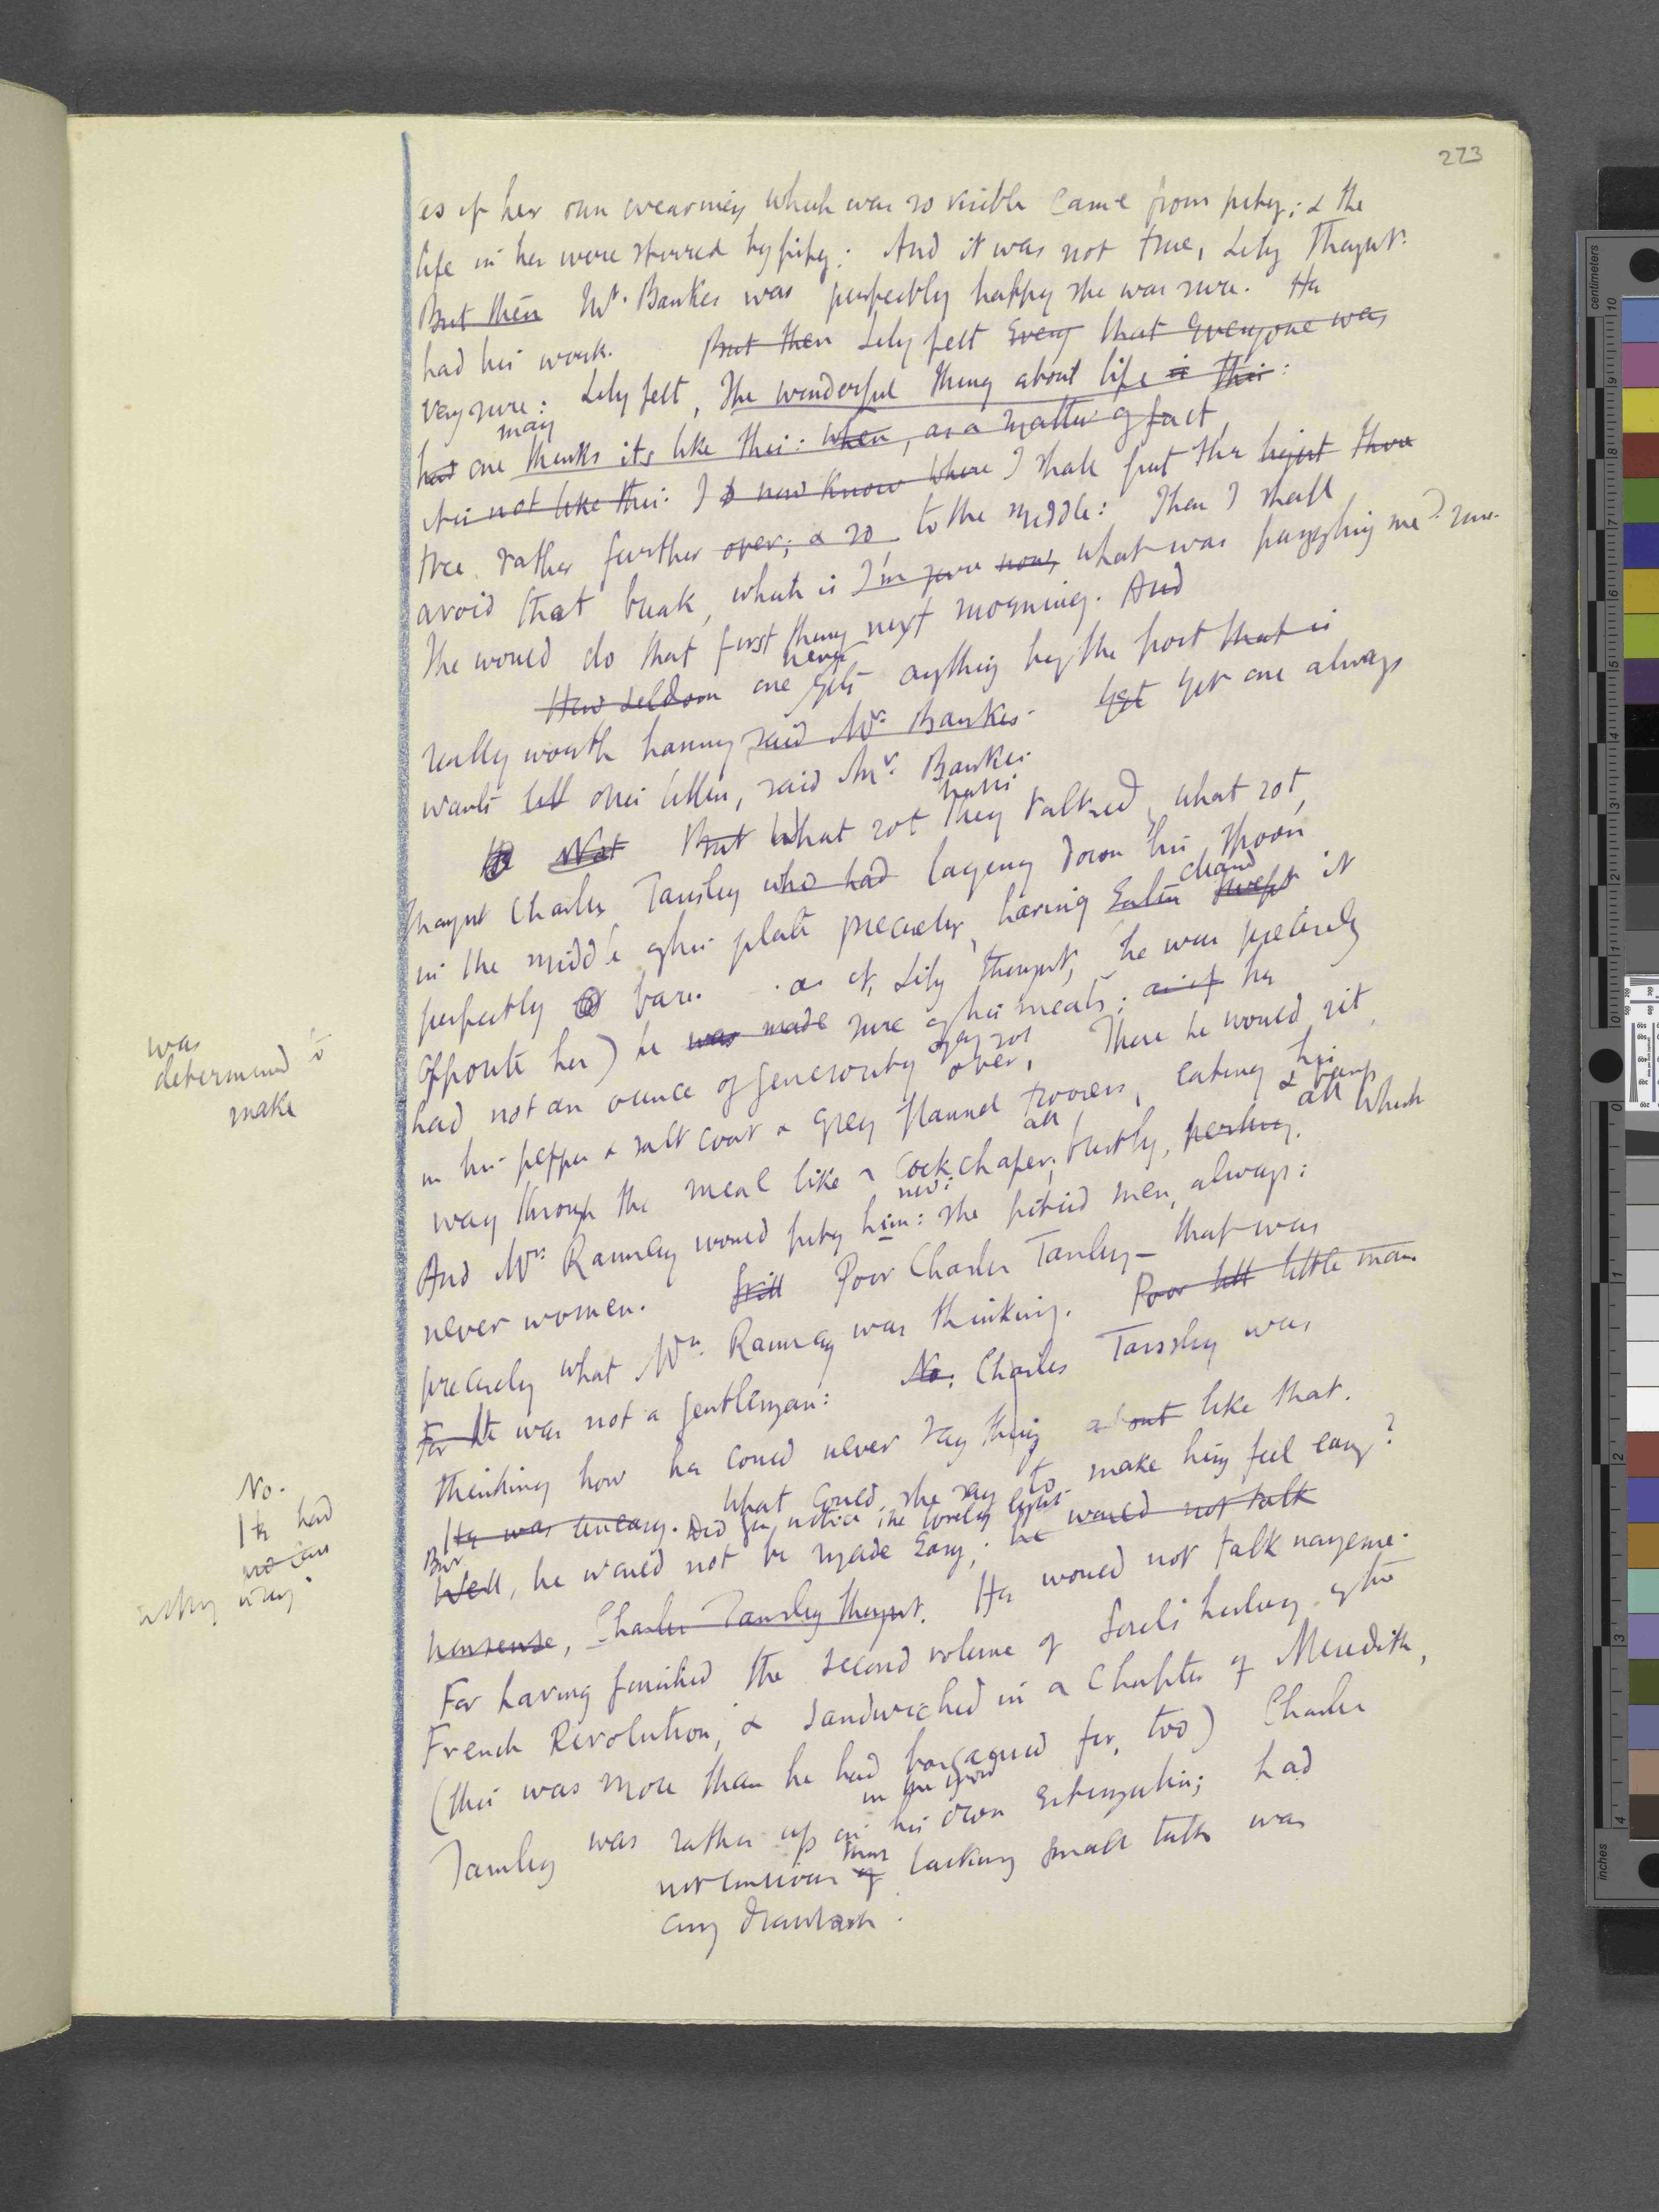 273
as if her own weariness which was so visible came from pity; & the
life in her were stirred by pity: And it was not true, Lily thought.
But then Mr. Bankes was perfectly happy she was sure. He
had his work. But then Lily felt Every that everyone was
very sure: Lily felt, The wonderful thing about life is this:
may
had one thinks its like this: when, as a matter of fact
it is not like this: I now know where I shall put the there
tree rather further over; & so to the middle: Then I shall
avoid that break, which is I'm sure now, what was puzzling me?
She would do that first thing next morning. And
never
How seldom one gets anything by the post that is
really worth having said Mr. Bankes. Yet Yet one always
wants one's letters, said Mr. Bankes.
Not But What rot they talked, what rot,
thought Charles Tansley who had laying down his spoon
clean
in the middle of his plate precisely, having Eaten swept it
perfectly bare. as if, Lily thought, he was precisely
was
determined to
make
opposite her) he was made sure of his meals; as if he
had not an ounce of generosity over, There he would sit
in his pepper & salt coat & grey flannel trousers, eating his
all
way through the meal like a cockchafer; all which
And Mrs. Ramsay would pity him: she pitied men, always:
never women. Still Poor Charles Tansley - that was
precisely what Mrs. Ramsay was thinking. Poor little man
For He was not a gentleman: No: Charles Tansley was
thinking how he could never say thing about like that.
What could she say to make him feel easy?
No.
He had
He was uneasy. Did you notice the lovely light
But
Well, he would not be made Easy; he would not talk
nonsense, Charles Tansley thought. He would not talk nonsense.
For having finished the second volume of Sorel's history of the
French Revolution, & sandwiched in a Chapter of Meredith,
(this was more than he had bargained for, too) Charles
Tansley was rather up in his own estimation; had
not conscious of lacking small talk was
any drawback.